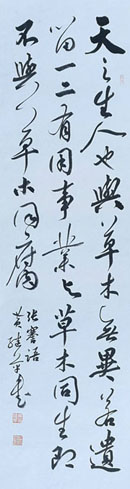 天之生人也與草木無異若遺
留一二有用事業与草木同生即
不與草木同腐
張謇語